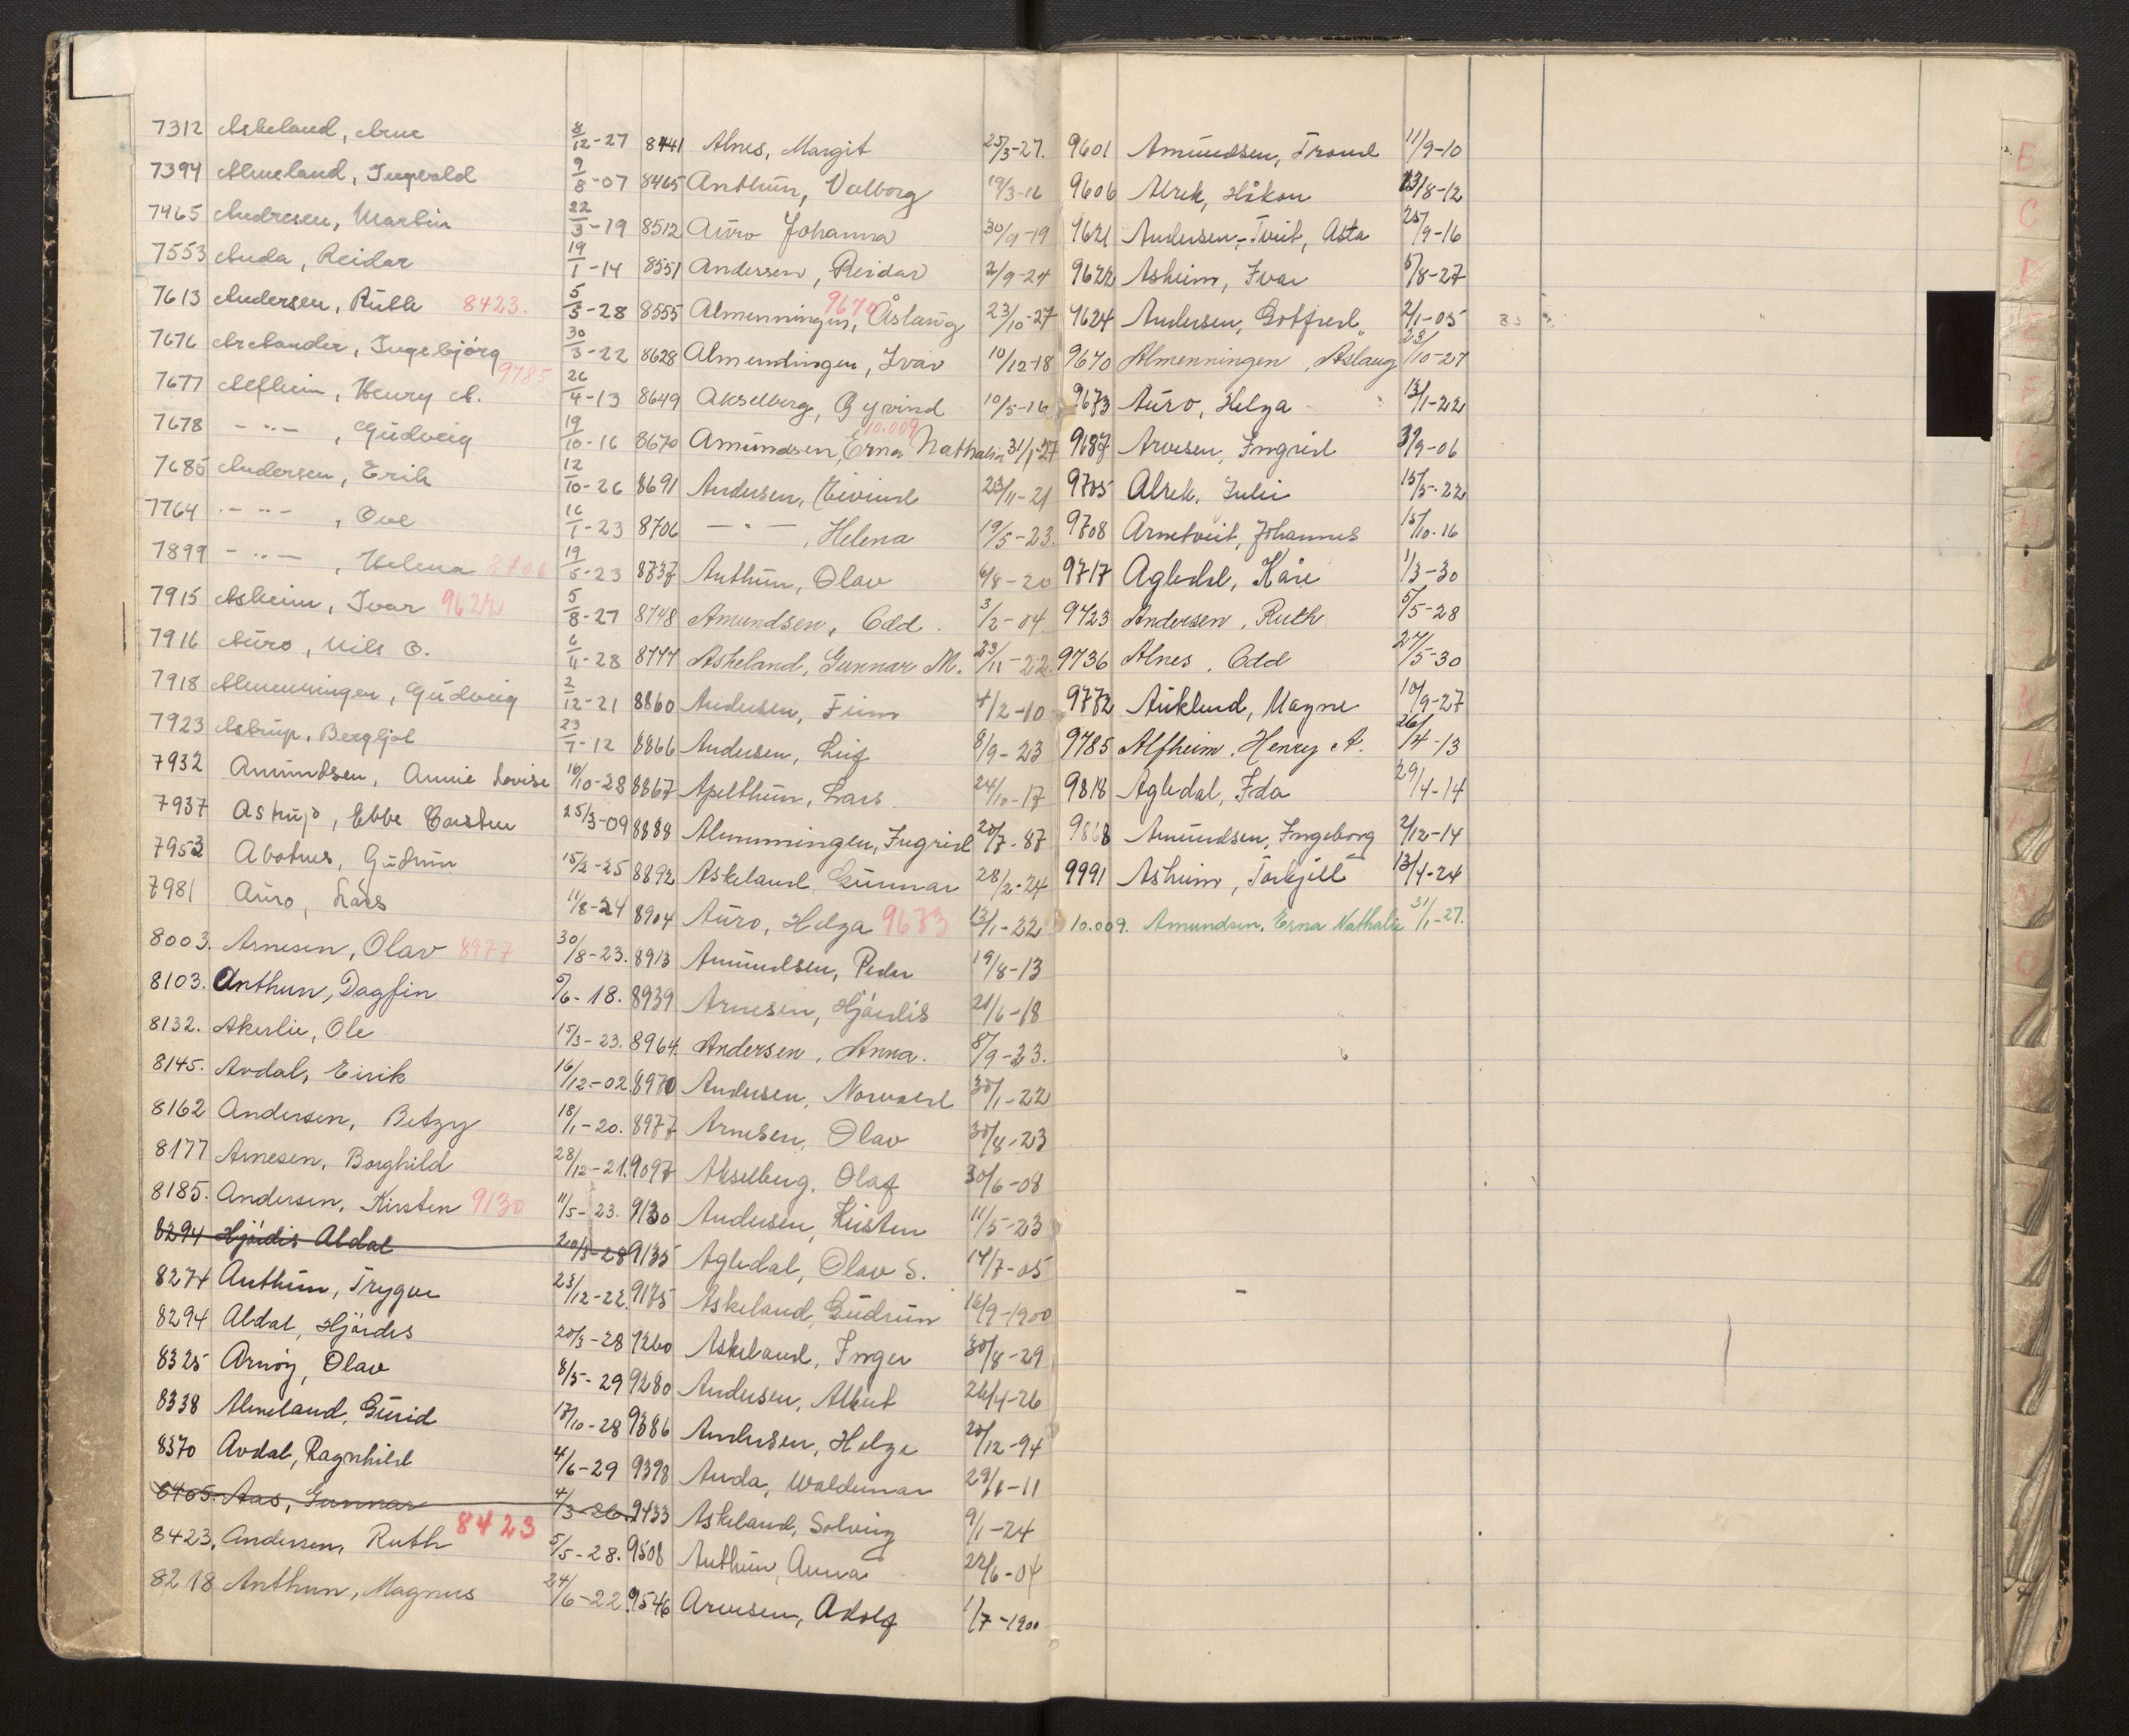 7312 Askeland, Arne 8/12-27
7394 Almeland, Ingvald 9/8-07
7465 Andresen, Martin 22/3-19
7553 Auda, Reidar 19/1-14
7613 Andersen, Ruth 8423. 5/5-28
7676 Arelander, Ingebjörg 30/3-22
7677 Alfheim, Henry A. 9785 26/4-13
7678 - " - , Gudveig 19/10-16
7685 Andersen, Erik 12/10-26
7764 - " - , Ove 16/1-23
7899 - " - , Helena 8706 19/5-23
7915 Asheim, Ivar 9622 5/8-27
7916 Auro, Nils O. 6/11-28
7918 Almenningen, Gudveig 2/12-21
7923 Astrup, Bergljot 23/7-12
7932 Amundsen, Annie Lovise 16/10-28
7937 Astrup, Ebbe Carsten 25/3-09
7953 Abotnes, Gudrun 15/2-25
7981 Auro, Lars 11/8-24
8003. Arnesen, Olav 8977 30/8-23.
8103. Anthun, Dagfin 5/6-18.
8132. Akerlie, Ole 15/3-23.
8145. Avdal, Eirik 16/12-02
8162 Andersen, Betzy 18/1-20.
8177 Arnesen, Borghild 28/12-21.
8185. Andersen, Kirsten 9130 11/5-23.
8294 Hjördis Aldal 20/3-28
8274 Anthun, Trygve 23/12-22
8294 Aldal, Hjördis 20/3-28
8325 Arnöy, Olav 8/5-29
8338 Almeland, Gurid 17/10-28
8370 Avdal, Ragnhild 4/6-29
8405. Aas, Gunnar 4/3-26
8423. Andersen, Ruth 8423 5/5-28.
8218 Anthun, Magnus 24/6-22
8441 Alnes, Margit 25/3-27.
8465 Anthun, Valborg 19/3-16
8512 Auro Johanna 30/9-19
8551 Andersen, Reidar 2/9-24
8555 Almenningen, Åslaug 9670 23/10-27
8628 Almenningen, Ivar 10/12-18
8649 Akselberg, Öyvind 10/5-16
8670 Amundsen, Erna Nathalie 10.009 31/1-27
8691 Andersen, Eivind 23/11-21
8706 - " - , Helena 19/5-23.
8737 Anthun, Olav 6/8-20
8748 Amundsen, Odd. 3/2-04
8777 Askeland, Gunnar M. 23/11-22.
8860 Andersen, Finn 4/2-10
8866 Andersen, Leif 8/9-23
8867 Apelthun, Lars 24/10-17
8888 Almenningen, Ingrid 20/7-87
8892 Askeland, Gunnar 28/2-24
8904 Auro, Helga 9673 13/1-22
8913 Amundsen, Peder 19/8-13
8939 Arnesen, Hjördis 21/6-18
8964. Andersen, Anna. 8/9-23.
8970 Andersen, Norvald 30/1-22
8977 Arnesen, Olav 30/8-23
9097 Akselberg, Olaf 30/6-08
9130 Andersen, Kirsten 11/5-23
9135 Agledal, Olav S. 14/7-05
9175 Askeland, Gudrun 16/9-1900
9260 Askeland, Inger 30/8-29
9280 Andersen, Albert 26/4-26
9386 Andersen, Helge 20/12-94
9398 Auda, Waldemar 29/6-11
9433 Askeland, Solveig 9/1-24
9508 Anthun, Anna 22/6-04
9546 Arnesen, Adolf 1/7-1900
9601 Amundsen, Trond 11/9-10
9606 Alrek, Håkon 13/8-12
9621 Andersen-Tveit, Asta 25/9-16
9622 Asheim, Ivar 5/8-27
9624 Andersen, Gotfred 2/1-05
9670 Almenningen, Aslaug 23/10-27
9673 Auro, Helga 13/1-22
9687 Arnesen, Ingrid 3/9-06
9705 Alrek, Julie 15/5-22
9708 Arnetveit, Johannes 15/10-16
9717 Agledal, Kåre 1/3-30
9723 Andersen, Ruth 5/5-28
9736 Alnes, Odd 27/5-30
9772 Auklend, Magne 10/9-27
9785 Alfheim, Henry A. 26/4-13
9818 Agledal, Ida 29/4-14
9868 Amundsen, Ingeborg 2/12-14
9991 Asheim, Torkjell 13/4-24
10.009. Amundsen, Erna Nathalie 31/1-27.
B
C
D
E
F
H
K
L
N
O